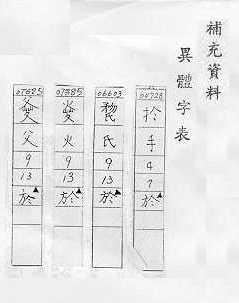 補充資料
異體字表
04728
扵
手
4
7
於
06603
氏
9
13
於
07385
火
9
13
於
07525
父
9
13
於